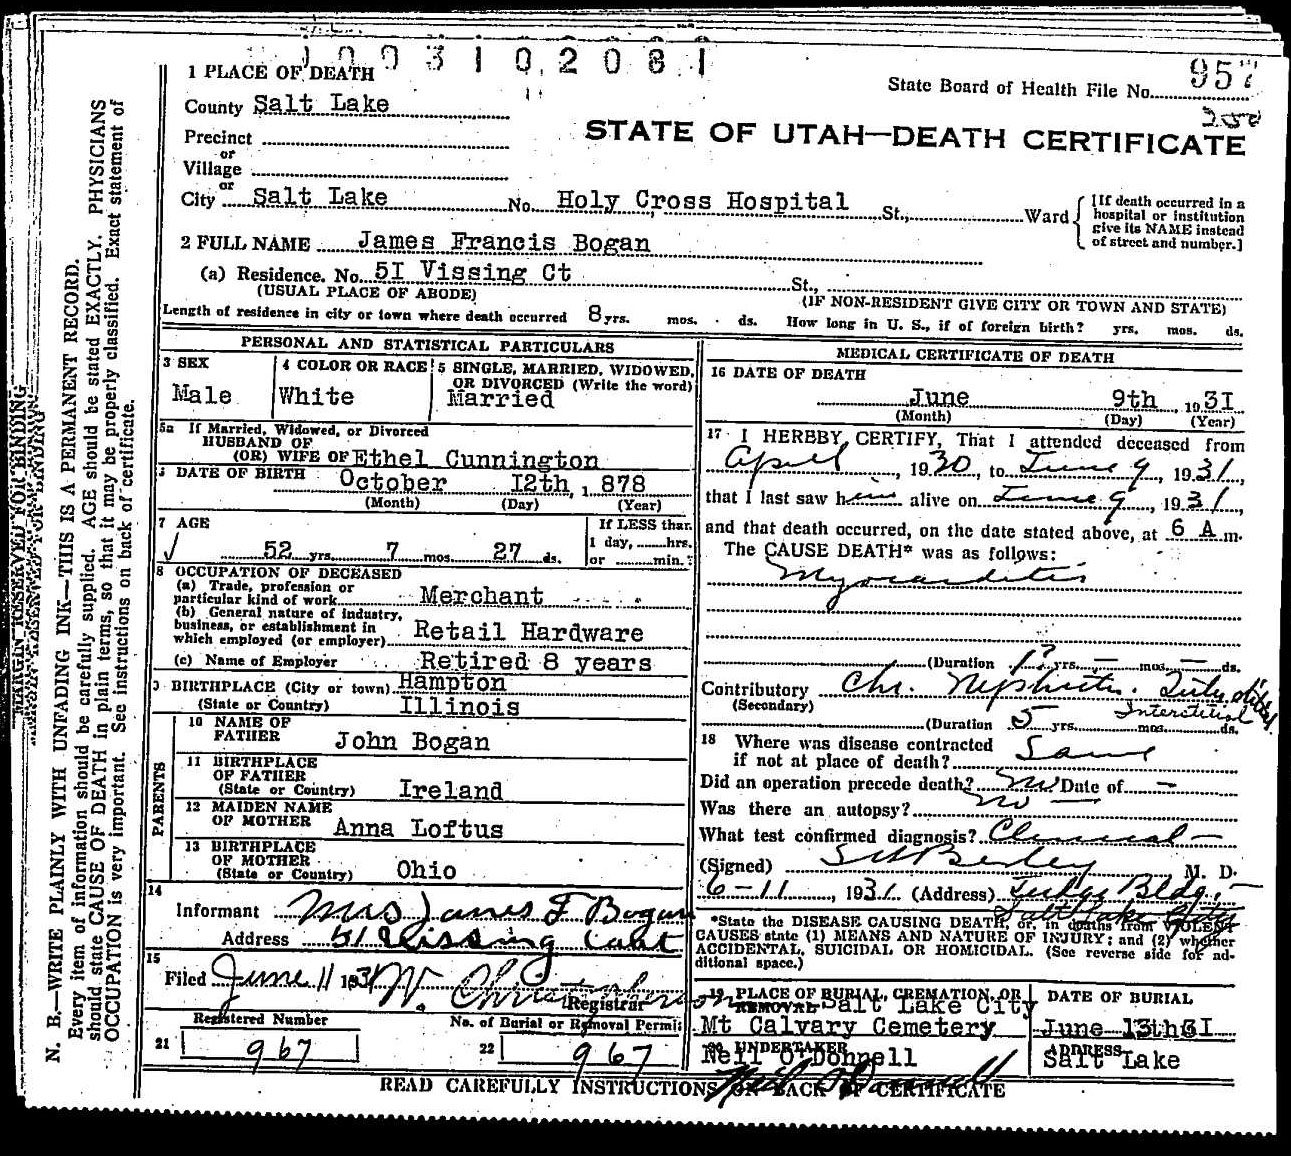 1003102081
1 PLACE OF DEATH
State Board of Health File No. 957
County Salt Lake
STATE OF UTAH—DEATH CERTIFICATE
Precinct
or
Village
or
City Salt Lake No. Holy Cross Hospital St., Ward
[If death occurred in a
hospital or institution
give its NAME instead
of street and number.]
2 FULL NAME James Francis Bogan
(a) Residence. No. 5I Vissing Ct St.,
(USUAL PLACE OF ABODE) (IF NON-RESIDENT GIVE CITY OR TOWN AND STATE)
Length of residence in city or town where death occurred 8 yrs. mos. ds. How long in U. S., if of foreign birth? yrs. mos. ds.
PERSONAL AND STATISTICAL PARTICULARS
3 SEX
Male
4 COLOR OR RACE
White
5 SINGLE, MARRIED, WIDOWED,
OR DIVORCED (Write the word)
Married
5a If Married, Widowed, or Divorced
HUSBAND OF
(OR) WIFE OF Ethel Cunnington
DATE OF BIRTH October I2th, 1 878
(Month) (Day) (Year)
7 AGE
52 yrs. 7 mos. 27 ds.
If LESS than
1 day, hrs.
or min.
8 OCCUPATION OF DECEASED
(a) Trade, profession or
particular kind of work Merchant
(b) General nature of industry,
business, or establishment in
which employed (or employer) Retail Hardware
(c) Name of Employer Retired 8 years
9 BIRTHPLACE (City or town) Hampton
(State or Country) Illinois
PARENTS
10 NAME OF
FATHER John Bogan
11 BIRTHPLACE
OF FATHER
(State or Country) Ireland
12 MAIDEN NAME
OF MOTHER Anna Loftus
13 BIRTHPLACE
OF MOTHER
(State or Country) Ohio
14
Informant Mrs James F Bogan
Address 51 Vissing Court
15
Filed June 11 1931 W. Christopherson
Registrar
Registered Number
21 967
No. of Burial or Removal Permit
22 967
MEDICAL CERTIFICATE OF DEATH
16 DATE OF DEATH
June 9th 1931
(Month) (Day) (Year)
17 I HEREBY CERTIFY, That I attended deceased from
April, 1930, to June 9, 1931,
that I last saw him alive on June 9, 1931,
and that death occurred, on the date stated above, at 6 A m.
The CAUSE DEATH* was as follows:
Myocarditis
(Duration 1? yrs. — mos. — ds.
Contributory Chr. Nephritis.
(Secondary) Interstitial
(Duration 5 yrs. mos. ds.
18 Where was disease contracted
if not at place of death? Same
Did an operation precede death? No Date of —
Was there an autopsy? No —
What test confirmed diagnosis? Clinical —
(Signed) M. D.
6-11, 1931 (Address) Judge Bldg. —
Salt Lake City
*State the DISEASE CAUSING DEATH, or, in deaths from VIOLENT
CAUSES state (1) MEANS AND NATURE OF INJURY; and (2) whether
ACCIDENTAL, SUICIDAL OR HOMICIDAL. (See reverse side for ad-
ditional space.)
19 PLACE OF BURIAL, CREMATION, OR
REMOVAL Salt Lake City
Mt Calvary Cemetery
DATE OF BURIAL
June 13th 3I
20 UNDERTAKER
Neil O'Donnell
Neil O'Donnell
ADDRESS
Salt Lake
READ CAREFULLY INSTRUCTIONS ON BACK OF CERTIFICATE
MARGIN RESERVED FOR BINDING
N. B.—WRITE PLAINLY WITH UNFADING INK—THIS IS A PERMANENT RECORD.
Every item of information should be carefully supplied. AGE should be stated EXACTLY. PHYSICIANS
should state CAUSE OF DEATH in plain terms, so that it may be properly classified. Exact statement of
OCCUPATION is very important. See instructions on back of certificate.